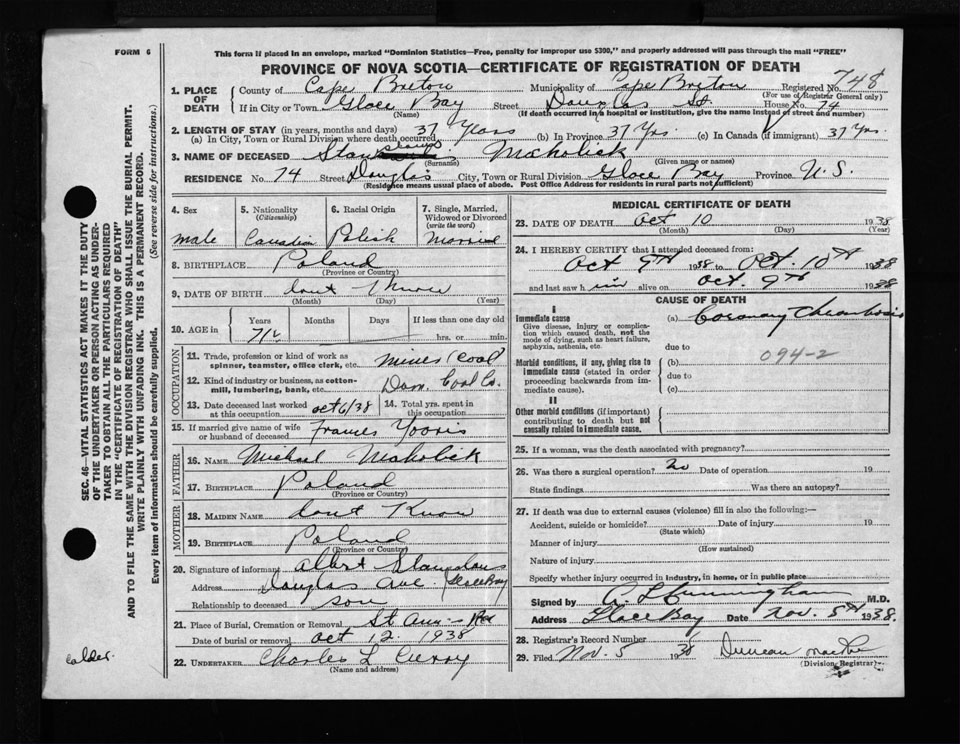 FORM 6
This form if placed in an envelope, marked "Dominion Statistics—Free, penalty for improper use $300," and properly addressed will pass through the mail "FREE"
PROVINCE OF NOVA SCOTIA—CERTIFICATE OF REGISTRATION OF DEATH
748
1. PLACE OF DEATH County of Cape Breton Municipality of Cape Breton Registered No.
(For use of Registrar General only)
If in City or Town Glace Bay Street Douglas St. House No. 74
(Name) (If death occurred in a hospital or institution, give the name instead of street and number)
2. LENGTH OF STAY (in years, months and days)
(a) In City, Town or Rural Division where death occurred 37 Years (b) In Province 37 Yrs. (c) In Canada (if immigrant) 37 Yrs.
3. NAME OF DECEASED Maholick
(Surname) (Given name or names)
RESIDENCE No. 74 Street Douglas City, Town or Rural Division Glace Bay Province N.S.
(Residence means usual place of abode. Post Office Address for residents in rural parts not sufficient)
4. Sex
male
5. Nationality
(Citizenship)
Canadian
6. Racial Origin
Polish
7. Single, Married, Widowed or Divorced
(write the word)
Married
8. BIRTHPLACE Poland
(Province or Country)
9. DATE OF BIRTH dont Know
(Month) (Day) (Year)
10. AGE in Years Months Days If less than one day old
71 hrs. or min.
OCCUPATION
11. Trade, profession or kind of work as spinner, teamster, office clerk, etc. Miner (Coal
12. Kind of industry or business, as cotton-mill, lumbering, bank, etc. Dom. Coal Co.
13. Date deceased last worked at this occupation oct 6/38
14. Total yrs. spent in this occupation
15. If married give name of wife or husband of deceased Frances
FATHER
16. NAME Michael Maholick
17. BIRTHPLACE Poland
(Province or Country)
MOTHER
18. MAIDEN NAME dont Know
19. BIRTHPLACE Poland
(Province or Country)
20. Signature of informant Albert
Address Douglas Ave. Glace Bay
Relationship to deceased son
21. Place of Burial, Cremation or Removal St Ann's
Date of burial or removal oct 12. 1938
22. UNDERTAKER Charles L Curry
(Name and address)
MEDICAL CERTIFICATE OF DEATH
23. DATE OF DEATH Oct 10 1938
(Month) (Day) (Year)
24. I HEREBY CERTIFY that I attended deceased from:
Oct 9th 1938 to Oct. 10th 1938
and last saw him alive on Oct. 9th 1938
CAUSE OF DEATH
I
Immediate cause
Give disease, injury or complication which caused death, not the mode of dying, such as heart failure, asphyxia, asthenia, etc.
(a) Coronary Thrombosis
due to
094-2
Morbid conditions, if any, giving rise to immediate cause (stated in order proceeding backwards from immediate cause).
(b)
due to
(c)
II
Other morbid conditions (if important) contributing to death but not causally related to immediate cause.
25. If a woman, was the death associated with pregnancy?
26. Was there a surgical operation? no Date of operation 19
State findings Was there an autopsy?
27. If death was due to external causes (violence) fill in also the following:—
Accident, suicide or homicide? Date of injury 19
(State which)
Manner of injury
(How sustained)
Nature of injury
Specify whether injury occurred in industry, in home, or in public place
Signed by Cunningham M.D.
Address Glace Bay Date Nov. 5th 1938.
28. Registrar's Record Number
29. Filed Nov. 5 1938 Duncan
(Division Registrar)
SEC. 46—VITAL STATISTICS ACT MAKES IT THE DUTY
OF THE UNDERTAKER OR PERSON ACTING AS UNDER-
TAKER TO OBTAIN ALL THE PARTICULARS REQUIRED
IN THE "CERTIFICATE OF REGISTRATION OF DEATH"
AND TO FILE THE SAME WITH THE DIVISION REGISTRAR WHO SHALL ISSUE THE BURIAL PERMIT.
WRITE PLAINLY WITH UNFADING INK. THIS IS A PERMANENT RECORD.
Every item of information should be carefully supplied.
(See reverse side for instructions.)
calder.